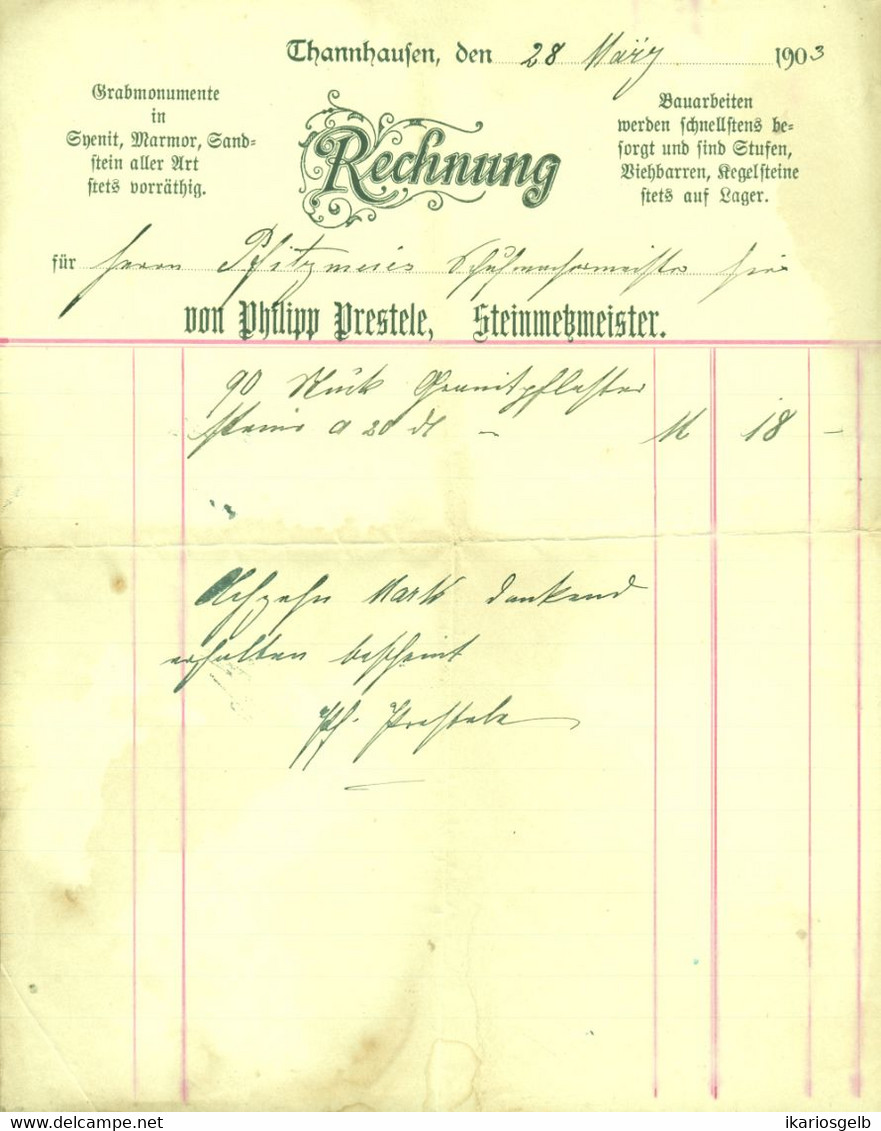 Thannhausen, den 28 März 1903
Grabmonumente
in
Syenit, Marmor, Sand-
stein aller Art
stets vorräthig.
Rechnung
Bauarbeiten
werden schnellstens be-
sorgt und sind Stufen,
Viehbarren, Kegelsteine
stets auf Lager.
für Herrn Pfitzmeier Schuhmachermeister hier
von Philipp Prestele, Steinmetzmeister.
90 Stück Granitpflaster
steine a 20 d – M 18 –
Achzehn Mark dankend
erhalten bescheint
Ph. Prestele
delcampe.net
ikariosgelb